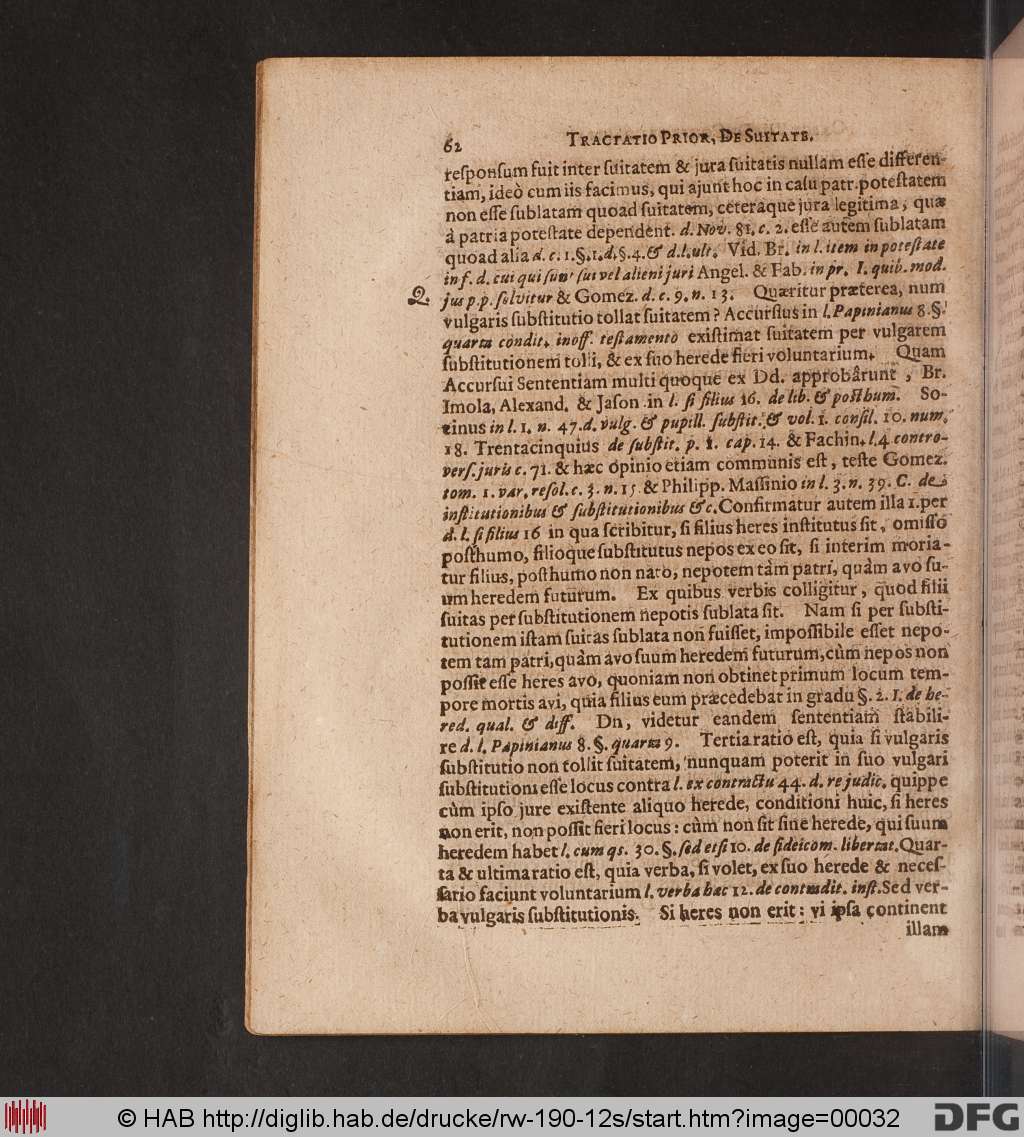 62 TRACTATIO PRIOR, DE SUITATE.
reſponſum fuit inter ſuitatem & jura ſuitatis nullam eſſe differen-
tiam, ideò cum iis facimus, qui ajunt hoc in caſu patr. poteſtatem
non eſſe ſublatam quoad ſuitatem, ceteraque jura legitima, quæ
à patria poteſtate dependent. d. Nov. 81. c. 2. eſſe autem ſublatam
quoad alia d. c. 1. §. 1. d. §. 4. & d. l. ult. Vid. Br. in l. item in poteſtate
in f. d. cui qui ſunt ſui vel alieni juri Angel. & Fab. in pr. I. quib. mod.
Q. jus p. p. ſolvitur & Gomez. d. c. 9. n. 13. Quæritur præterea, num
vulgaris ſubſtitutio tollat ſuitatem? Accurſius in l. Papinianus 8. §.
quarta condit. inoff. teſtamento exiſtimat ſuitatem per vulgarem
ſubſtitutionem tolli, & ex ſuo herede fieri voluntarium. Quam
Accurſui Sententiam multi quoque ex Dd. approbârunt, Br.
Imola, Alexand. & Jaſon in l. ſi filius 16. de lib. & poſthum. So-
cinus in l. 1. n. 47. d. vulg. & pupill. ſubſtit. & vol. 1. conſil. 10. num.
18. Trentacinquius de ſubſtit. p. 1. cap. 14. & Fachin. l. 4 contro-
verſ. juris c. 71. & hæc opinio etiam communis eſt, teſte Gomez.
tom. 1. var. reſol. c. 3. n. 15 & Philipp. Maſſinio in l. 3. n. 39. C. de
inſtitutionibus & ſubſtitutionibus &c. Confirmatur autem illa 1. per
d. l. ſi filius 16 in qua ſcribitur, ſi filius heres inſtitutus ſit, omiſſo
poſthumo, filioque ſubſtitutus nepos ex eo ſit, ſi interim moria-
tur filius, poſthumo non nato, nepotem tàm patri, quàm avo ſu-
um heredem futurum. Ex quibus verbis colligitur, quod filii
ſuitas per ſubſtitutionem nepotis ſublata ſit. Nam ſi per ſubſti-
tutionem iſtam ſuitas ſublata non fuiſſet, impoſſibile eſſet nepo-
tem tam patri, quàm avo ſuum heredem futurum, cùm nepos non
poſſit eſſe heres avo, quoniam non obtinet primum locum tem-
pore mortis avi, quia filius eum præcedebat in gradu §. 2. I. de he-
red. qual. & diff. Dn, videtur eandem ſententiam ſtabili-
re d. l. Papinianus 8. §. quarta 9. Tertia ratio eſt, quia ſi vulgaris
ſubſtitutio non tollit ſuitatem, nunquam poterit in ſuo vulgari
ſubſtitutioni eſſe locus contra l. ex contractu 44. d. re judic. quippe
cùm ipſo jure exiſtente aliquo herede, conditioni huic, ſi heres
non erit, non poſſit fieri locus: cùm non ſit ſine herede, qui ſuum
heredem habet l. cum qs. 30. §. ſed etſi 10. de fideicom. libertat. Quar-
ta & ultima ratio eſt, quia verba, ſi volet, ex ſuo herede & neceſ-
ſario faciunt voluntarium l. verba hac 12. de contradit. inſt. Sed ver-
ba vulgaris ſubſtitutionis. Si heres non erit: vi ipſa continent
illam
© HAB http://diglib.hab.de/drucke/rw-190-12s/start.htm?image=00032 DFG